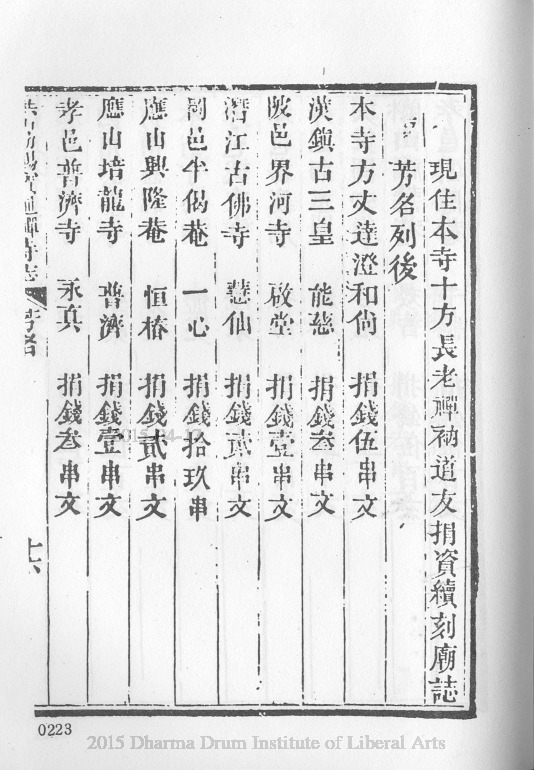 現住本寺十方長老禪衲道友捐資續刻廟誌
芳名列後
本寺方丈達澄和尚 捐錢伍串文
漢鎮古三皇 能慈 捐錢叁串文
陂邑界河寺 啟堂 捐錢壹串文
潛江古佛寺 慧仙 捐錢貳串文
岡邑半偈菴 一心 捐錢拾玖串
應山興隆菴 恒椿 捐錢貳串文
應山培龍寺 普濟 捐錢壹串文
孝邑普濟寺 永真 捐錢叁串文
通禪寺志 芳名
十六
0223
2015 Dharma Drum Institute of Liberal Arts